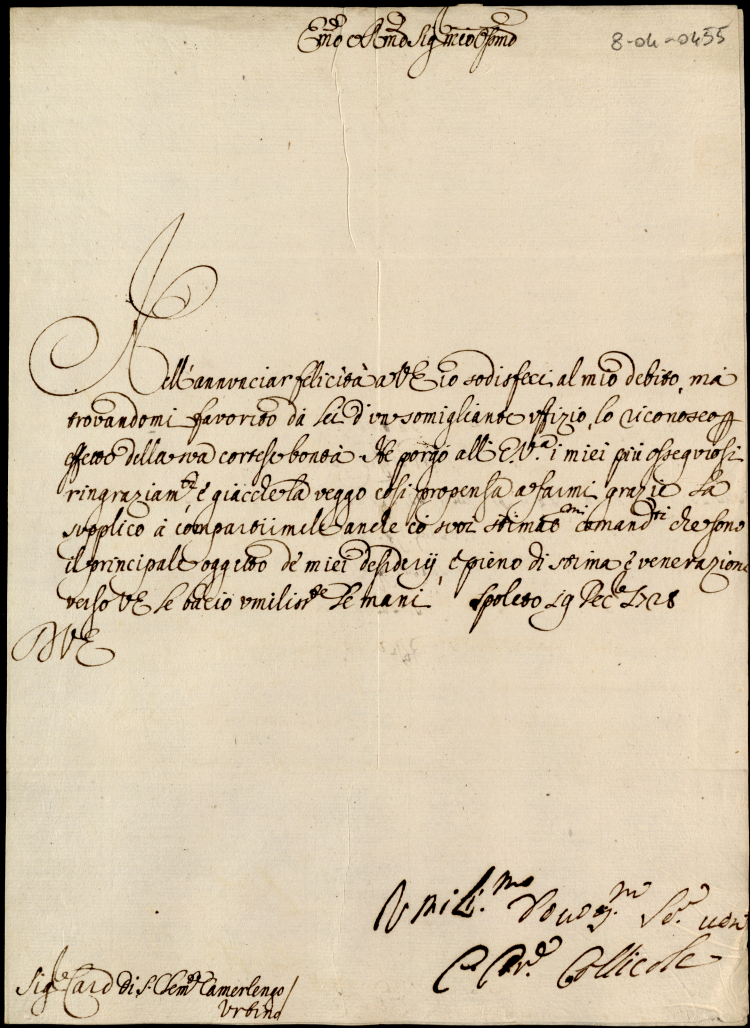 Em.o e Rmo Sig mio Ossmo
8-04-0455
Nell'annunciar felicità a V E io sodisfeci al mio debito, ma
trovandomi favorito da Lei d'un somigliante uffizio, lo riconosco p
effetto della sua cortese bontà. Ne porgo all' E.V.a i miei più ossequiosi
ringraziam.ti, e giacche la veggo così propensa a farmi grazie La
supplico à compartirmele anche co suoi stimat.mi comand.ti che sono
il principale oggetto de miei desiderij, e pieno di stima e venerazione
verso V E le bacio umilis.te le mani. Spoleto 19 Dec.e 1728
D V E
Umil.mo Devot.mo Se.r vero
C. Car.d Collicola
Sig.e Card di S. Clem.te Camerlengo /
Urbino